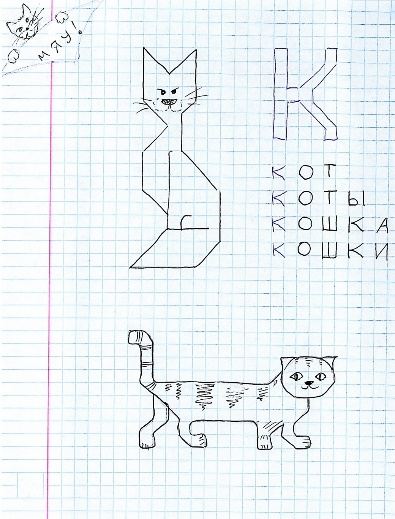 МЯУ!
К
КОТ
КОТЫ
КОШКА
КОШКИ